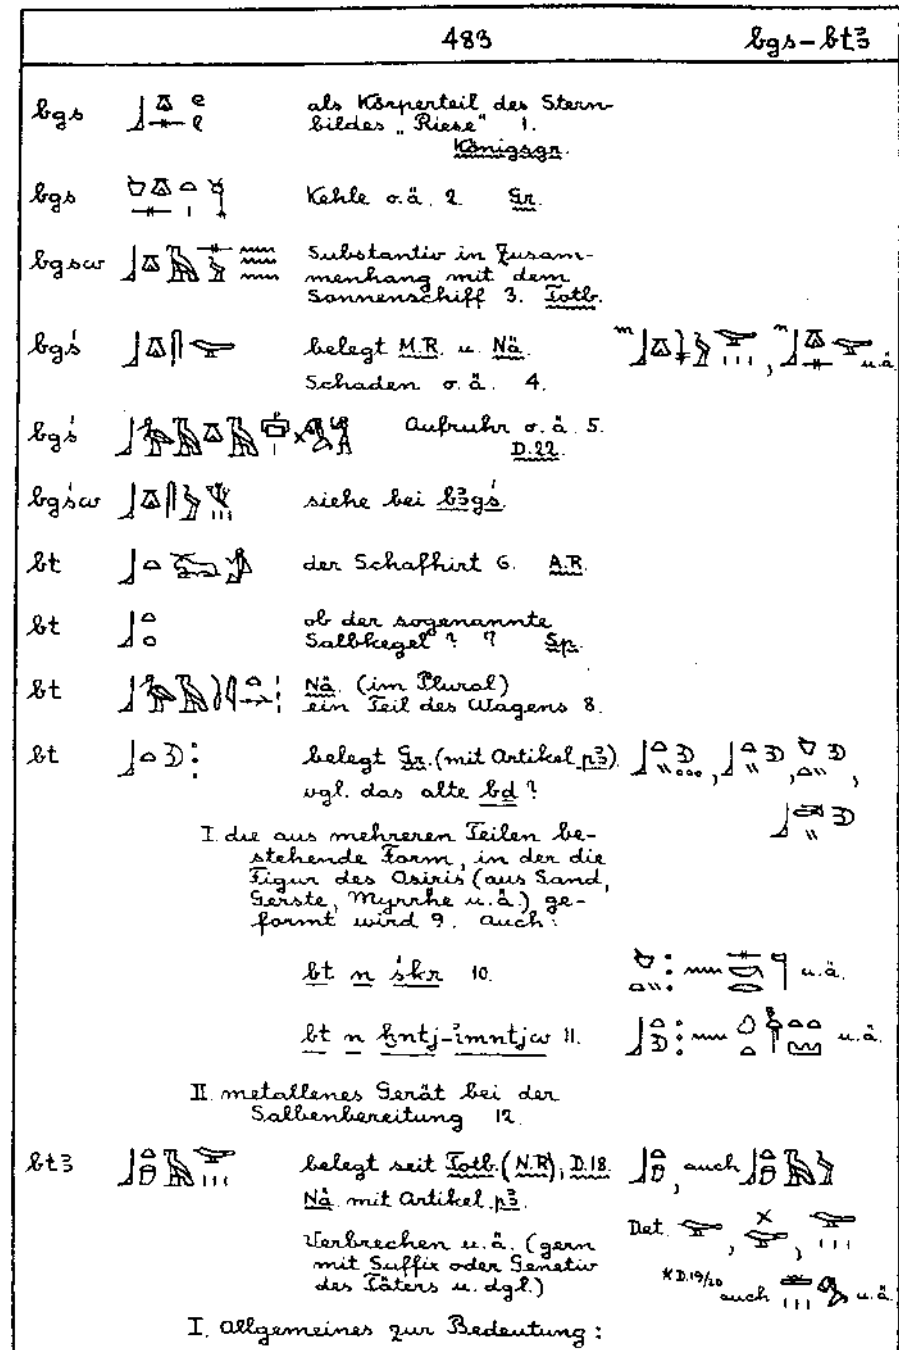 483 bgs – btꜣ
bgs als Körperteil des Stern-
bildes „Riese" 1.
Königsgr.
bgs Kehle o.ä. 2. Gr.
bgsw Substantiv in Zusam-
menhang mit dem
Sonnenschiff 3. Totb.
bgś belegt M.R. u. Nä. m , n u.ä.
Schaden o.ä. 4.
bgś Aufruhr o.ä. 5.
D.22.
bgśw siehe bei bꜣgś.
bt der Schafhirt 6. A.R.
bt ob der sogenannte
Salbkegel? 7 Sp.
bt Nä. (im Plural)
ein Teil des Wagens 8.
bt belegt Gr. (mit Artikel pꜣ)
vgl. das alte bd?
I. die aus mehreren Teilen be-
stehende Form, in der die
Figur des Osiris (aus Sand,
Gerste, Myrrhe u.ä.) ge-
formt wird 9. auch:
bt n śkr 10. u.ä.
bt n ḫntj-ı͗mntjw 11. u.ä.
II. metallenes Gerät bei der
Salbenbereitung 12.
btꜣ belegt seit Totb. (N.R), D.18. , auch
Nä. mit Artikel pꜣ.
Verbrechen u.ä. (gern Det. , ,
mit Suffix oder Genetiv
des Täters u. dgl.) * D.19/20 auch u.ä.
I. Allgemeines zur Bedeutung: